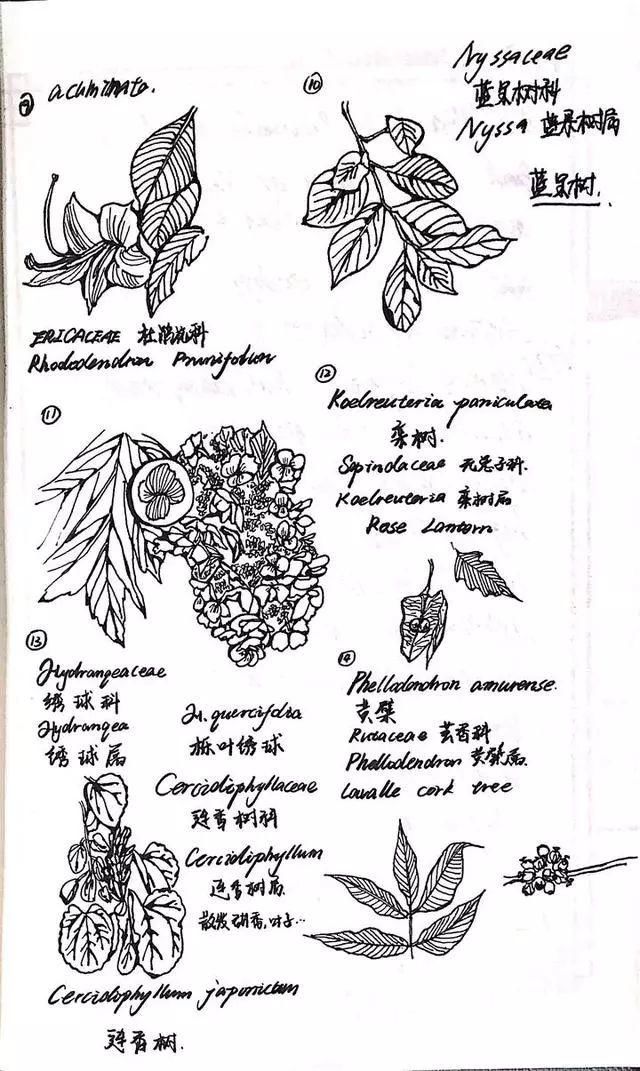 ⑨ acuminata.
ERICACEAE 杜鹃花科
Rhododendron Prunifolium
⑩
Nyssaceae
蓝果树科
Nyssa 蓝果树属
蓝果树.
⑪
⑫
Koelreuteria paniculata
栾树.
Sapindaceae 无患子科.
Koelreuteria 栾树属
Rose Lantern
⑬
Hydrangeaceae
绣球科
Hydrangea
绣球属
H. quercifolia
栎叶绣球
Cercidiphyllaceae
连香树科
Cercidiphyllum
连香树属
散发 香,叶子…
Cercidiphyllum japonicum
连香树.
⑭
Phellodendron amurense.
黄檗
Rutaceae 芸香科
Phellodendron 黄檗属.
Lavalle cork tree